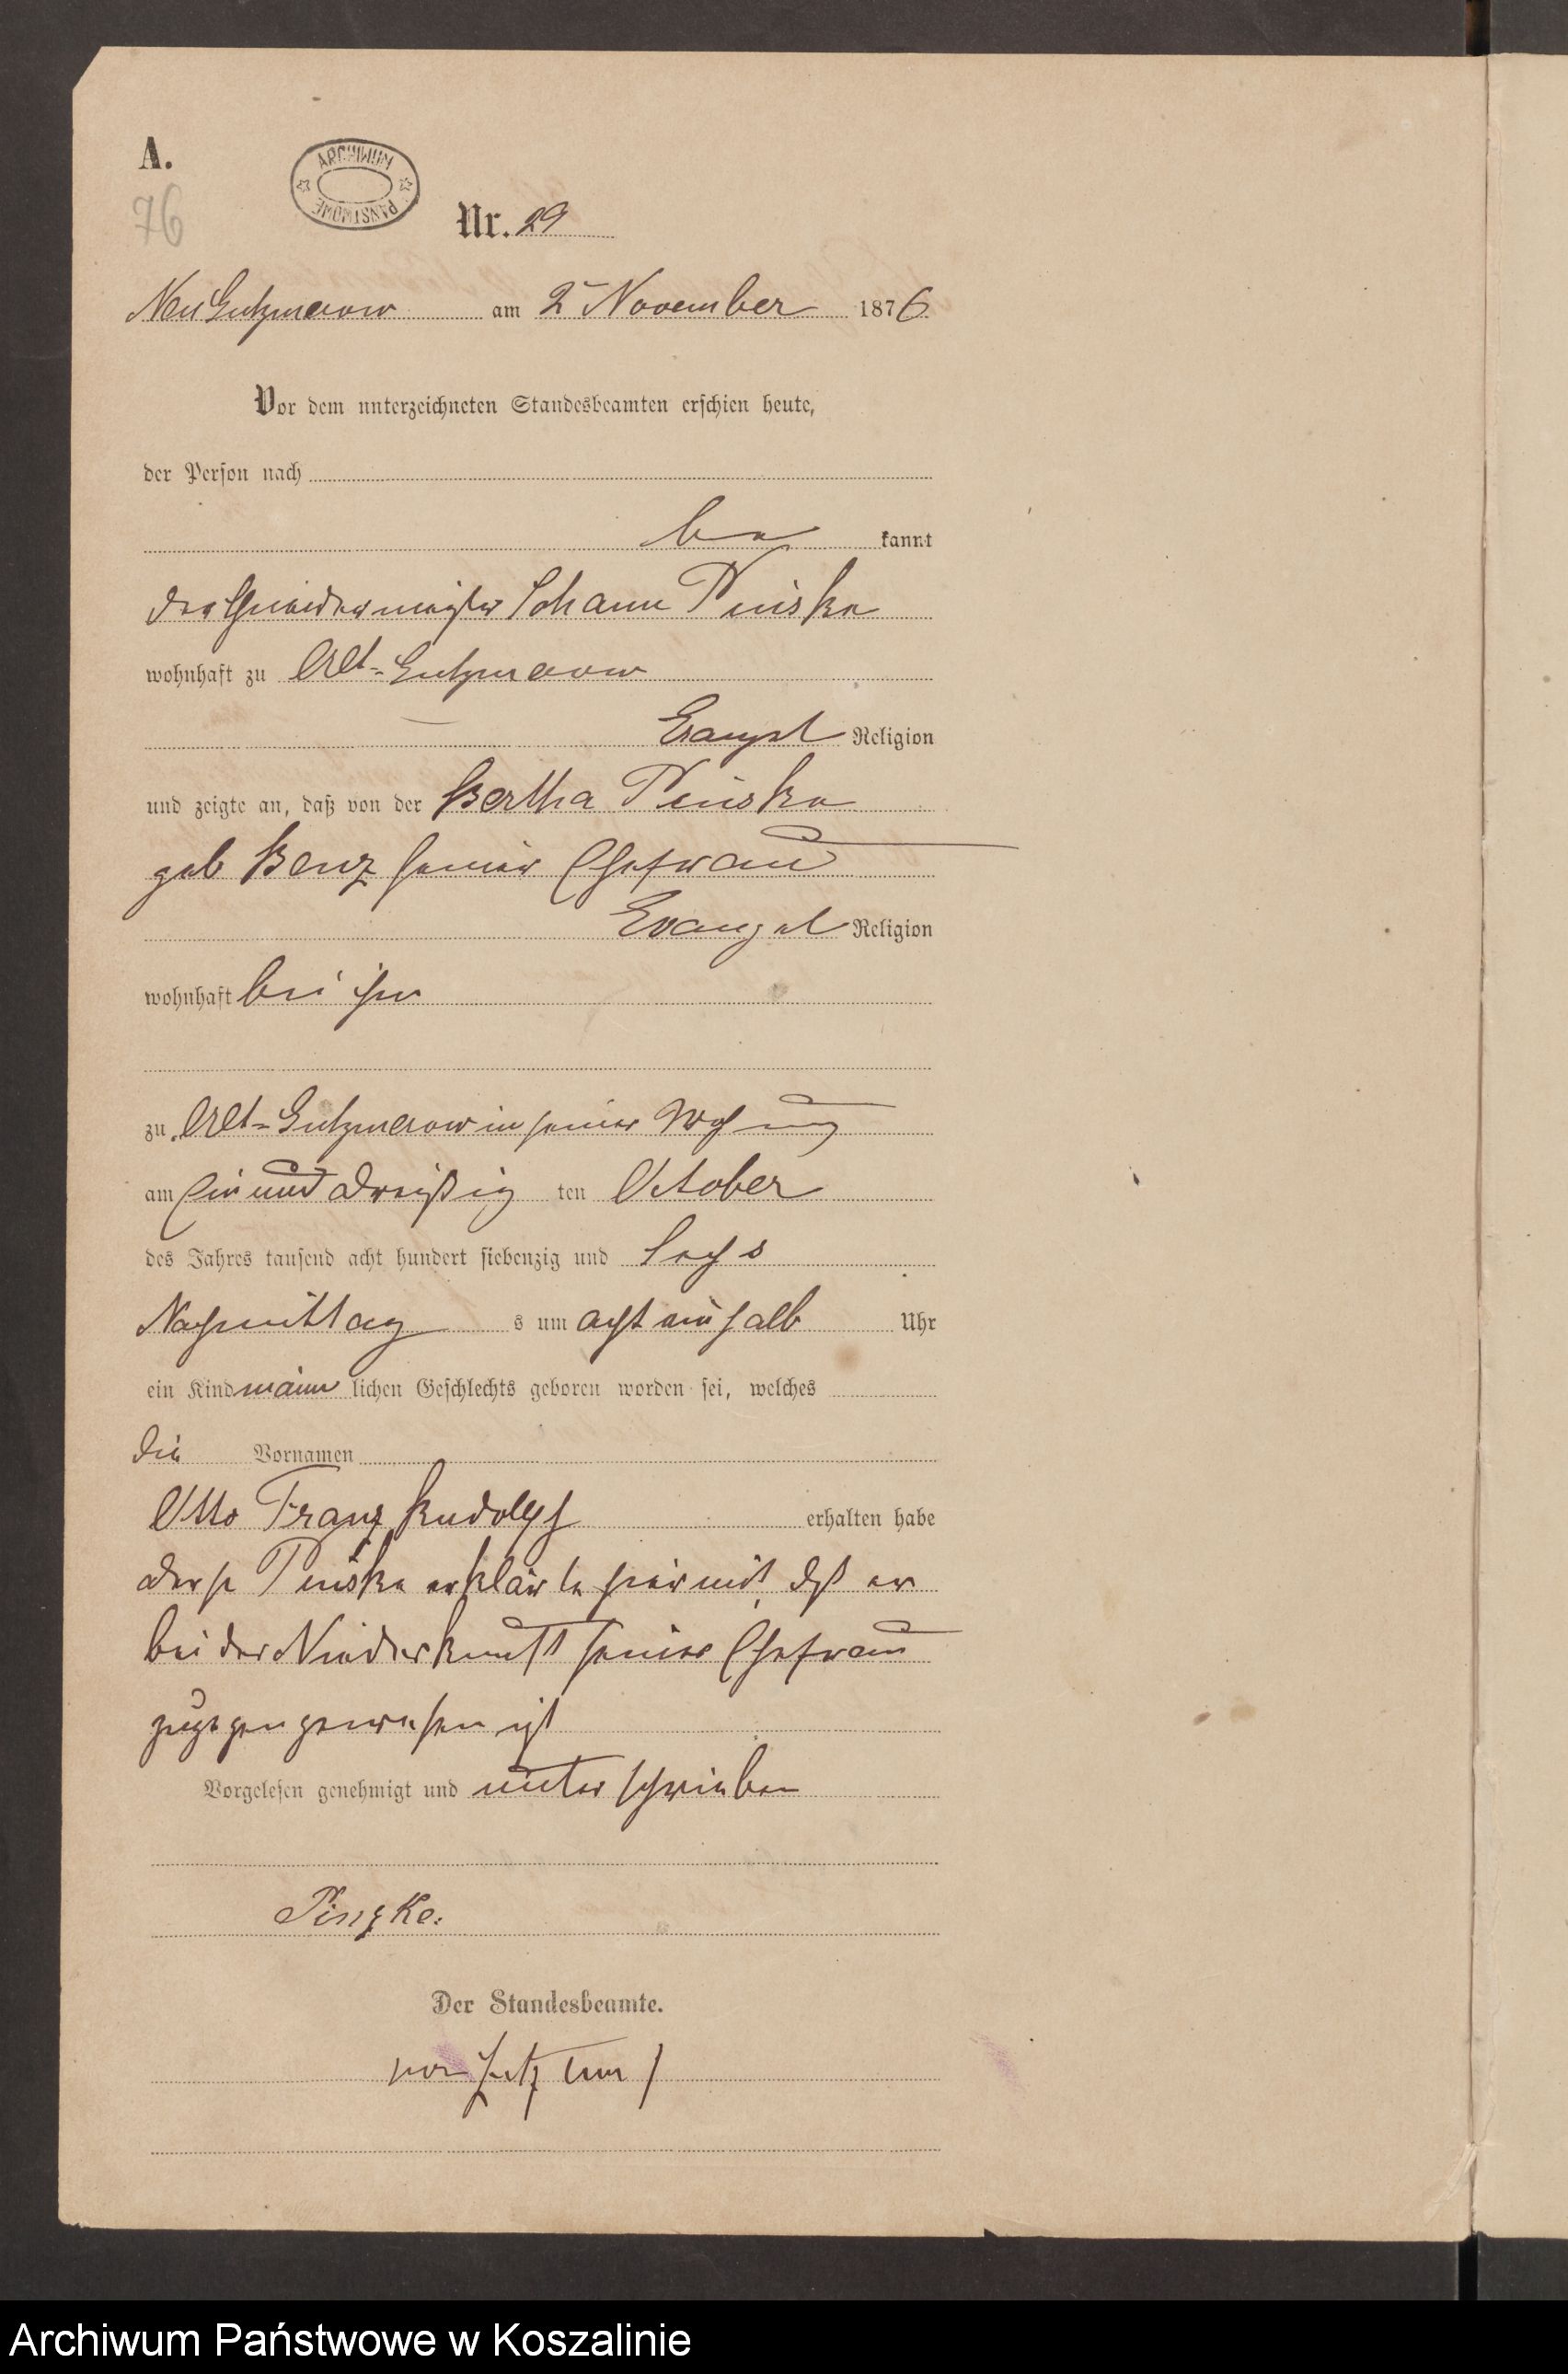 A.
76
ARCHIWUM
PAŃSTWOWE
Nr. 29
Neu Gutzmerow am 2 November 1876
Vor dem unterzeichneten Standesbeamten erschien heute,
der Person nach
be kannt
der Schneidermeister Johann Pinske
wohnhaft zu Alt-Gutzmerow
Evangel Religion
und zeigte an, daß von der Bertha Pinske
geb Benz seiner Ehefrau
Evangel Religion
wohnhaft bei ihm
zu Alt-Gutzmerow in seiner Wohnung
am Ein und dreißig ten October
des Jahres tausend acht hundert siebenzig und sechs
Nachmittag s um acht ein halb Uhr
ein Kind männ lichen Geschlechts geboren worden sei, welches
die Vornamen
Otto Franz Rudolph erhalten habe
Pinske erklärte hiermit, daß er
bei der Niederkunft seiner Ehefrau
zugegen gewesen ist
Vorgelesen genehmigt und unterschrieben
Pinzke.
Der Standesbeamte.
von
Archiwum Państwowe w Koszalinie